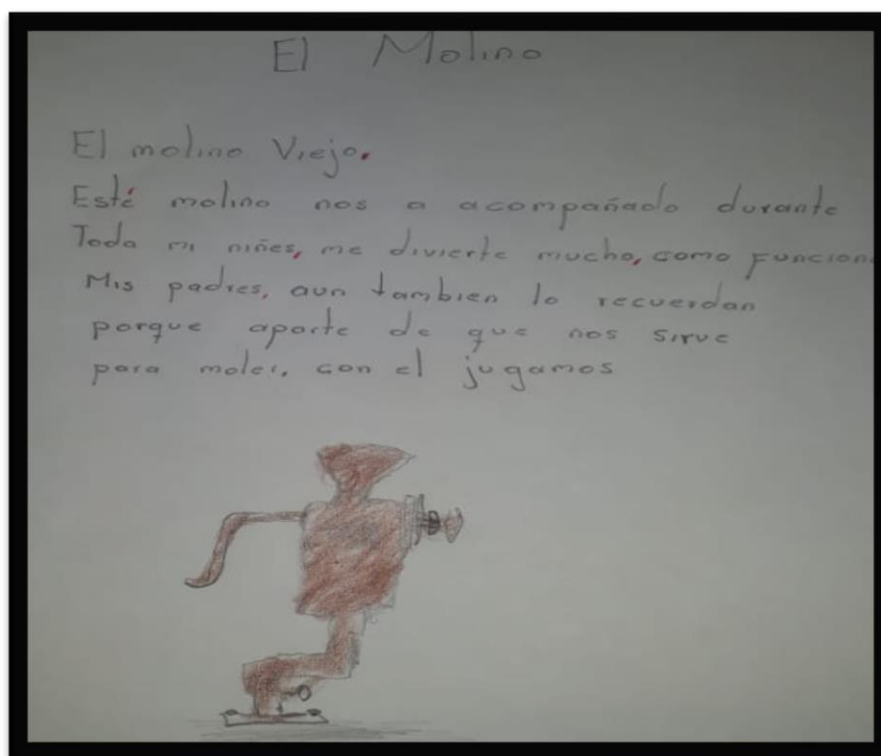 El Molino
El molino Viejo.
Esté molino nos a acompañado durante
Toda mi niñes, me divierte mucho, como Funcion
Mis padres, aun tambien lo recuerdan
porque aparte de que nos sirve
para moler, con el jugamos